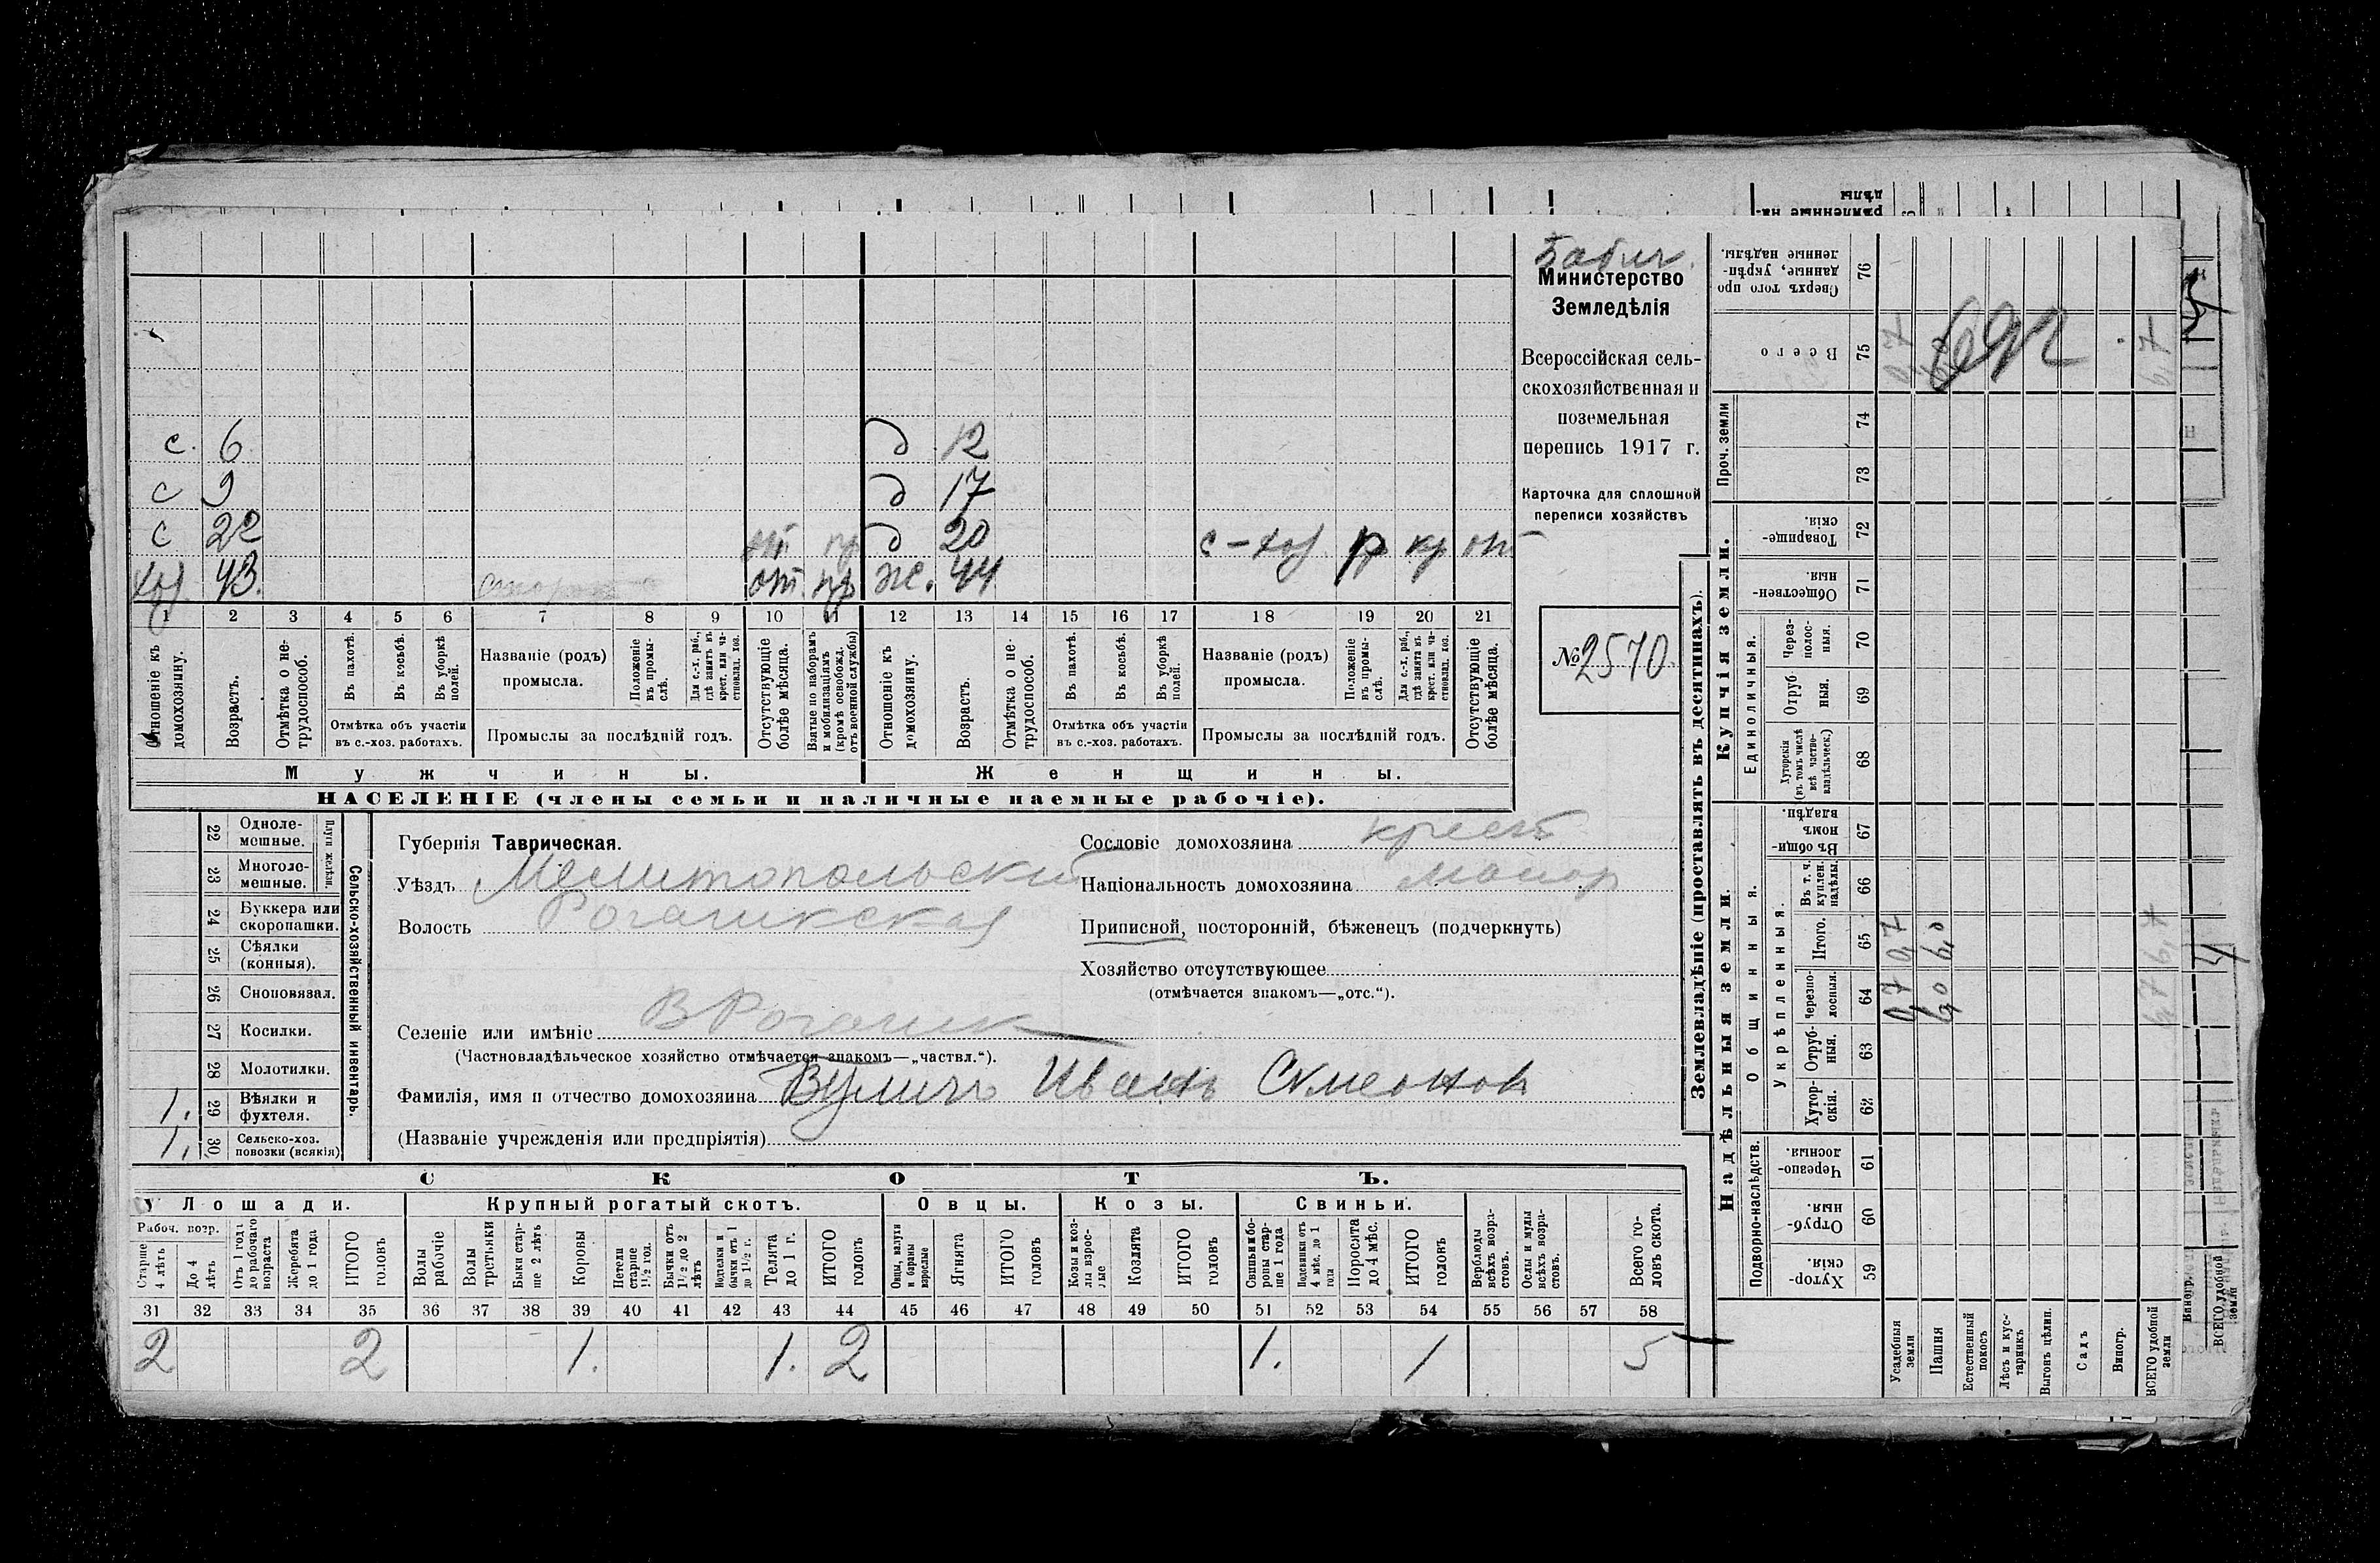 Министерство
Земледѣлія
Всероссійская сель-
скохозяйственная и
поземельная
перепись 1917 г.
Карточка для сплошной
переписи хозяйствъ
№ 2570.
с. 6 д 12
с 9 д 17
с 22 пр д 20 с-хоз. р кр от
хоз. 43. от. пр ж. 44
1 2 3 4 5 6 7 8 9 10 11 12 13 14 15 16 17 18 19 20 21
Отношеніе къ домохозяину.
Возрастъ.
Отмѣтка о не-трудоспособ.
Въ пахотѣ.
Въ косьбѣ.
Въ уборкѣ полей.
Отмѣтка объ участіи
въ с.-хоз. работахъ.
Названіе (родъ)
промысла.
Положеніе въ промы-слѣ.
Для с.-х. раб., гдѣ занятъ въ крест. или ча-стновлад. хоз.
Промыслы за послѣдній годъ.
Отсутствующіе болѣе мѣсяца.
Взятые по наборамъ и мобилизаціямъ (кромѣ освобожд. отъ военной службы)
Отношеніе къ домохозяину.
Возрастъ.
Отмѣтка о не-трудоспособ.
Въ пахотѣ.
Въ косьбѣ.
Въ уборкѣ полей.
Отмѣтка объ участіи
въ с.-хоз. работахъ.
Названіе (родъ)
промысла.
Положеніе въ промы-слѣ.
Для с.-х. раб., гдѣ занятъ въ крест. или ча-стновлад. хоз.
Промыслы за послѣдній годъ.
Отсутствующіе болѣе мѣсяца.
Мужчины. Женщины.
НАСЕЛЕНІЕ (члены семьи и наличные наемные рабочіе).
22 Одноле-мешные.
23 Многоле-мешные.
Плуги желѣзн.
24 Буккера или скоропашки.
25 Сѣялки (конныя).
26 Сноповязал.
27 Косилки.
28 Молотилки.
1. 29 Вѣялки и фухтеля.
1. 30 Сельско-хоз. повозки (всякія)
Сельско-хозяйственный инвентарь.
Губернія Таврическая.
Уѣздъ Мелитопольскій
Волость Рогачикская
Селеніе или имѣніе В Рогачик
(Частновладѣльческое хозяйство отмѣчается знакомъ—„частвл.“).
Фамилія, имя и отчество домохозяина Иванъ Семенов
(Названіе учрежденія или предпріятія)
Сословіе домохозяина крест
Національность домохозяина малор
Приписной, посторонній, бѣженецъ (подчеркнуть)
Хозяйство отсутствующее
(отмѣчается знакомъ—„отс.“).
СКОТЪ.
Лошади. Крупный рогатый скотъ. Овцы. Козы. Свиньи.
Рабоч. возр.
Старше 4 лѣтъ
До 4 лѣтъ
Отъ 1 года до рабочаго возраста
Жеребята до 1 года
ИТОГО головъ
Волы рабочіе
Волы третьяки
Быки стар-ше 2 лѣтъ
Коровы
Нетели старше 1½ год.
Бычки отъ 1½ до 2 лѣтъ
Нетелки и бычки отъ 1 до 1½ г.
Телята до 1 г.
ИТОГО головъ
Овцы, валухи и бараны взрослые
Ягнята
ИТОГО головъ
Козы и коз-лы взрос-лые
Козлята
ИТОГО головъ
Свиньи и бо-ровы стар-ше 1 года
Подсвинки отъ 4 мѣс. до 1 года
Поросята до 4 мѣс.
ИТОГО головъ
Верблюды всѣхъ возра-стовъ.
Ослы и мулы всѣхъ возра-стовъ.
Всего го-ловъ скота.
31 32 33 34 35 36 37 38 39 40 41 42 43 44 45 46 47 48 49 50 51 52 53 54 55 56 57 58
2 2 1. 1. 2 1. 1 5
Землевладѣніе (проставлять въ десятинахъ).
Надѣльныя земли. Купчія земли. Проч. земли
Подворно-наслѣдств.
Общинныя.
Укрѣпленныя.
Единоличныя.
Хутор-скія. 59
Отруб-ныя. 60
Черезпо-лосныя. 61
Хутор-скія. 62
Отруб-ныя. 63
Черезпо-лосныя. 64
Итого. 65
Въ т. ч. куплен. надѣлы. 66
Въ общи-номъ владѣн. 67
Хуторскія (въ томъ числѣ всѣ частно-владѣльческ.) 68
Отруб-ныя. 69
Через-полос-ныя. 70
Обществен-ныя. 71
Товарище-скія. 72
73
74
Всего 75
Сверхъ того про-данные, укрѣп-ленные надѣлы. 76
Усадебныя земли 0,7 0,7 0,7
Пашня 6,0 6,0
Естественный покосъ
Лѣсъ и кус-тарникъ
Выгонъ цѣлин.
Садъ
Виногр.
ВСЕГО удобной земли 6,7 6,7 6,7
Виногр.
ВСЕГО удобной земли